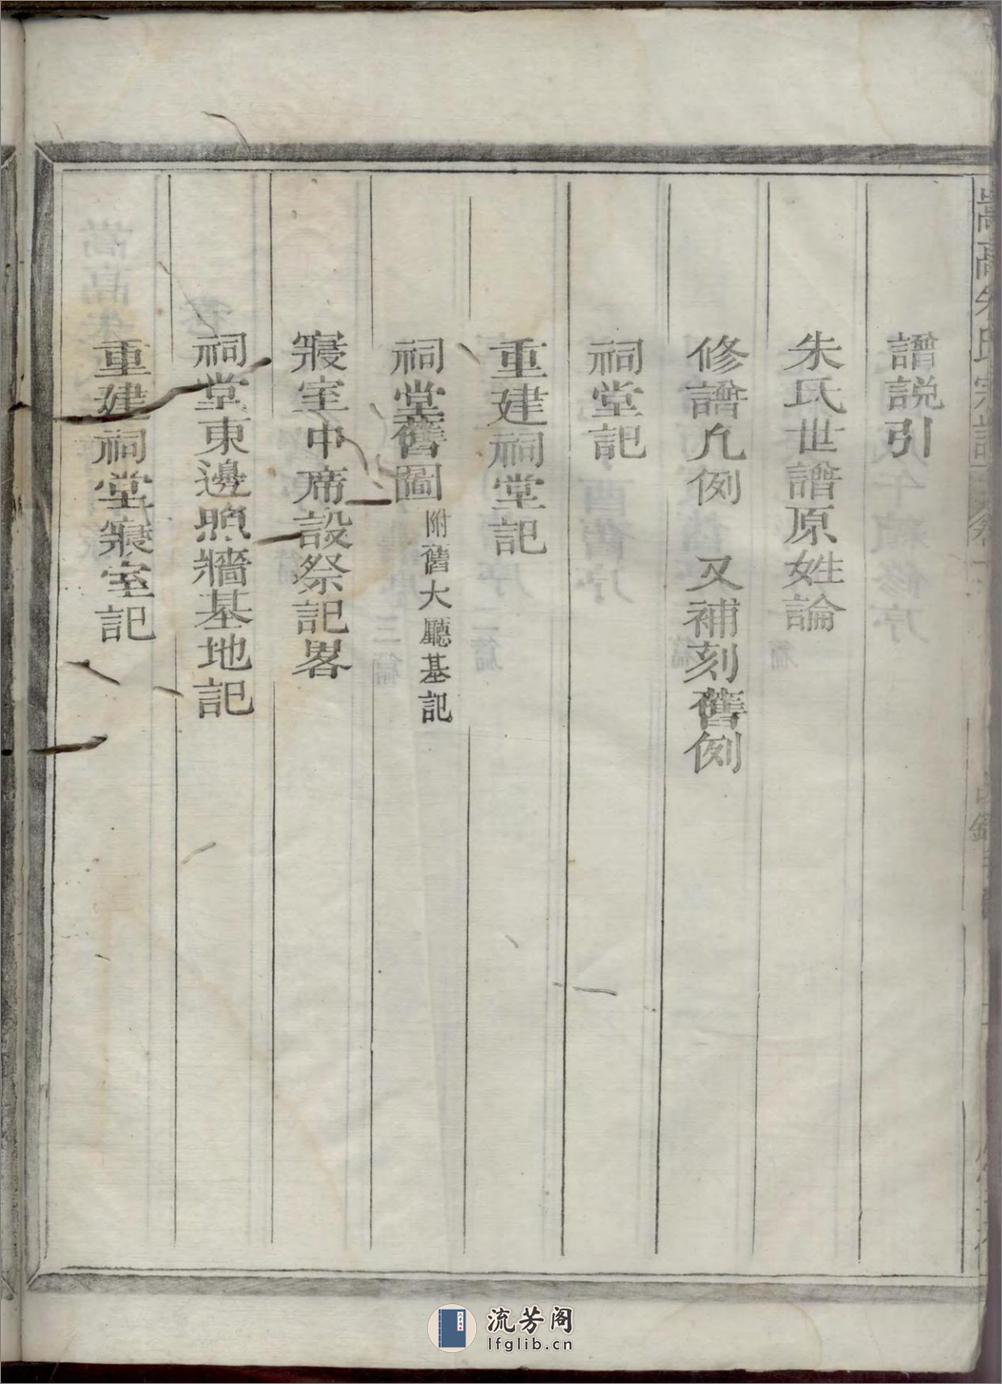 譜說引
朱氏世譜原姓論
修譜凡例　又補刻舊例
祠堂記
重建祠堂記
祠堂舊圖 附舊大廳基記
寢室中席設祭記畧
祠堂東邊照牆基地記
重建祠堂寢室記
流芳阁
lfglib.cn